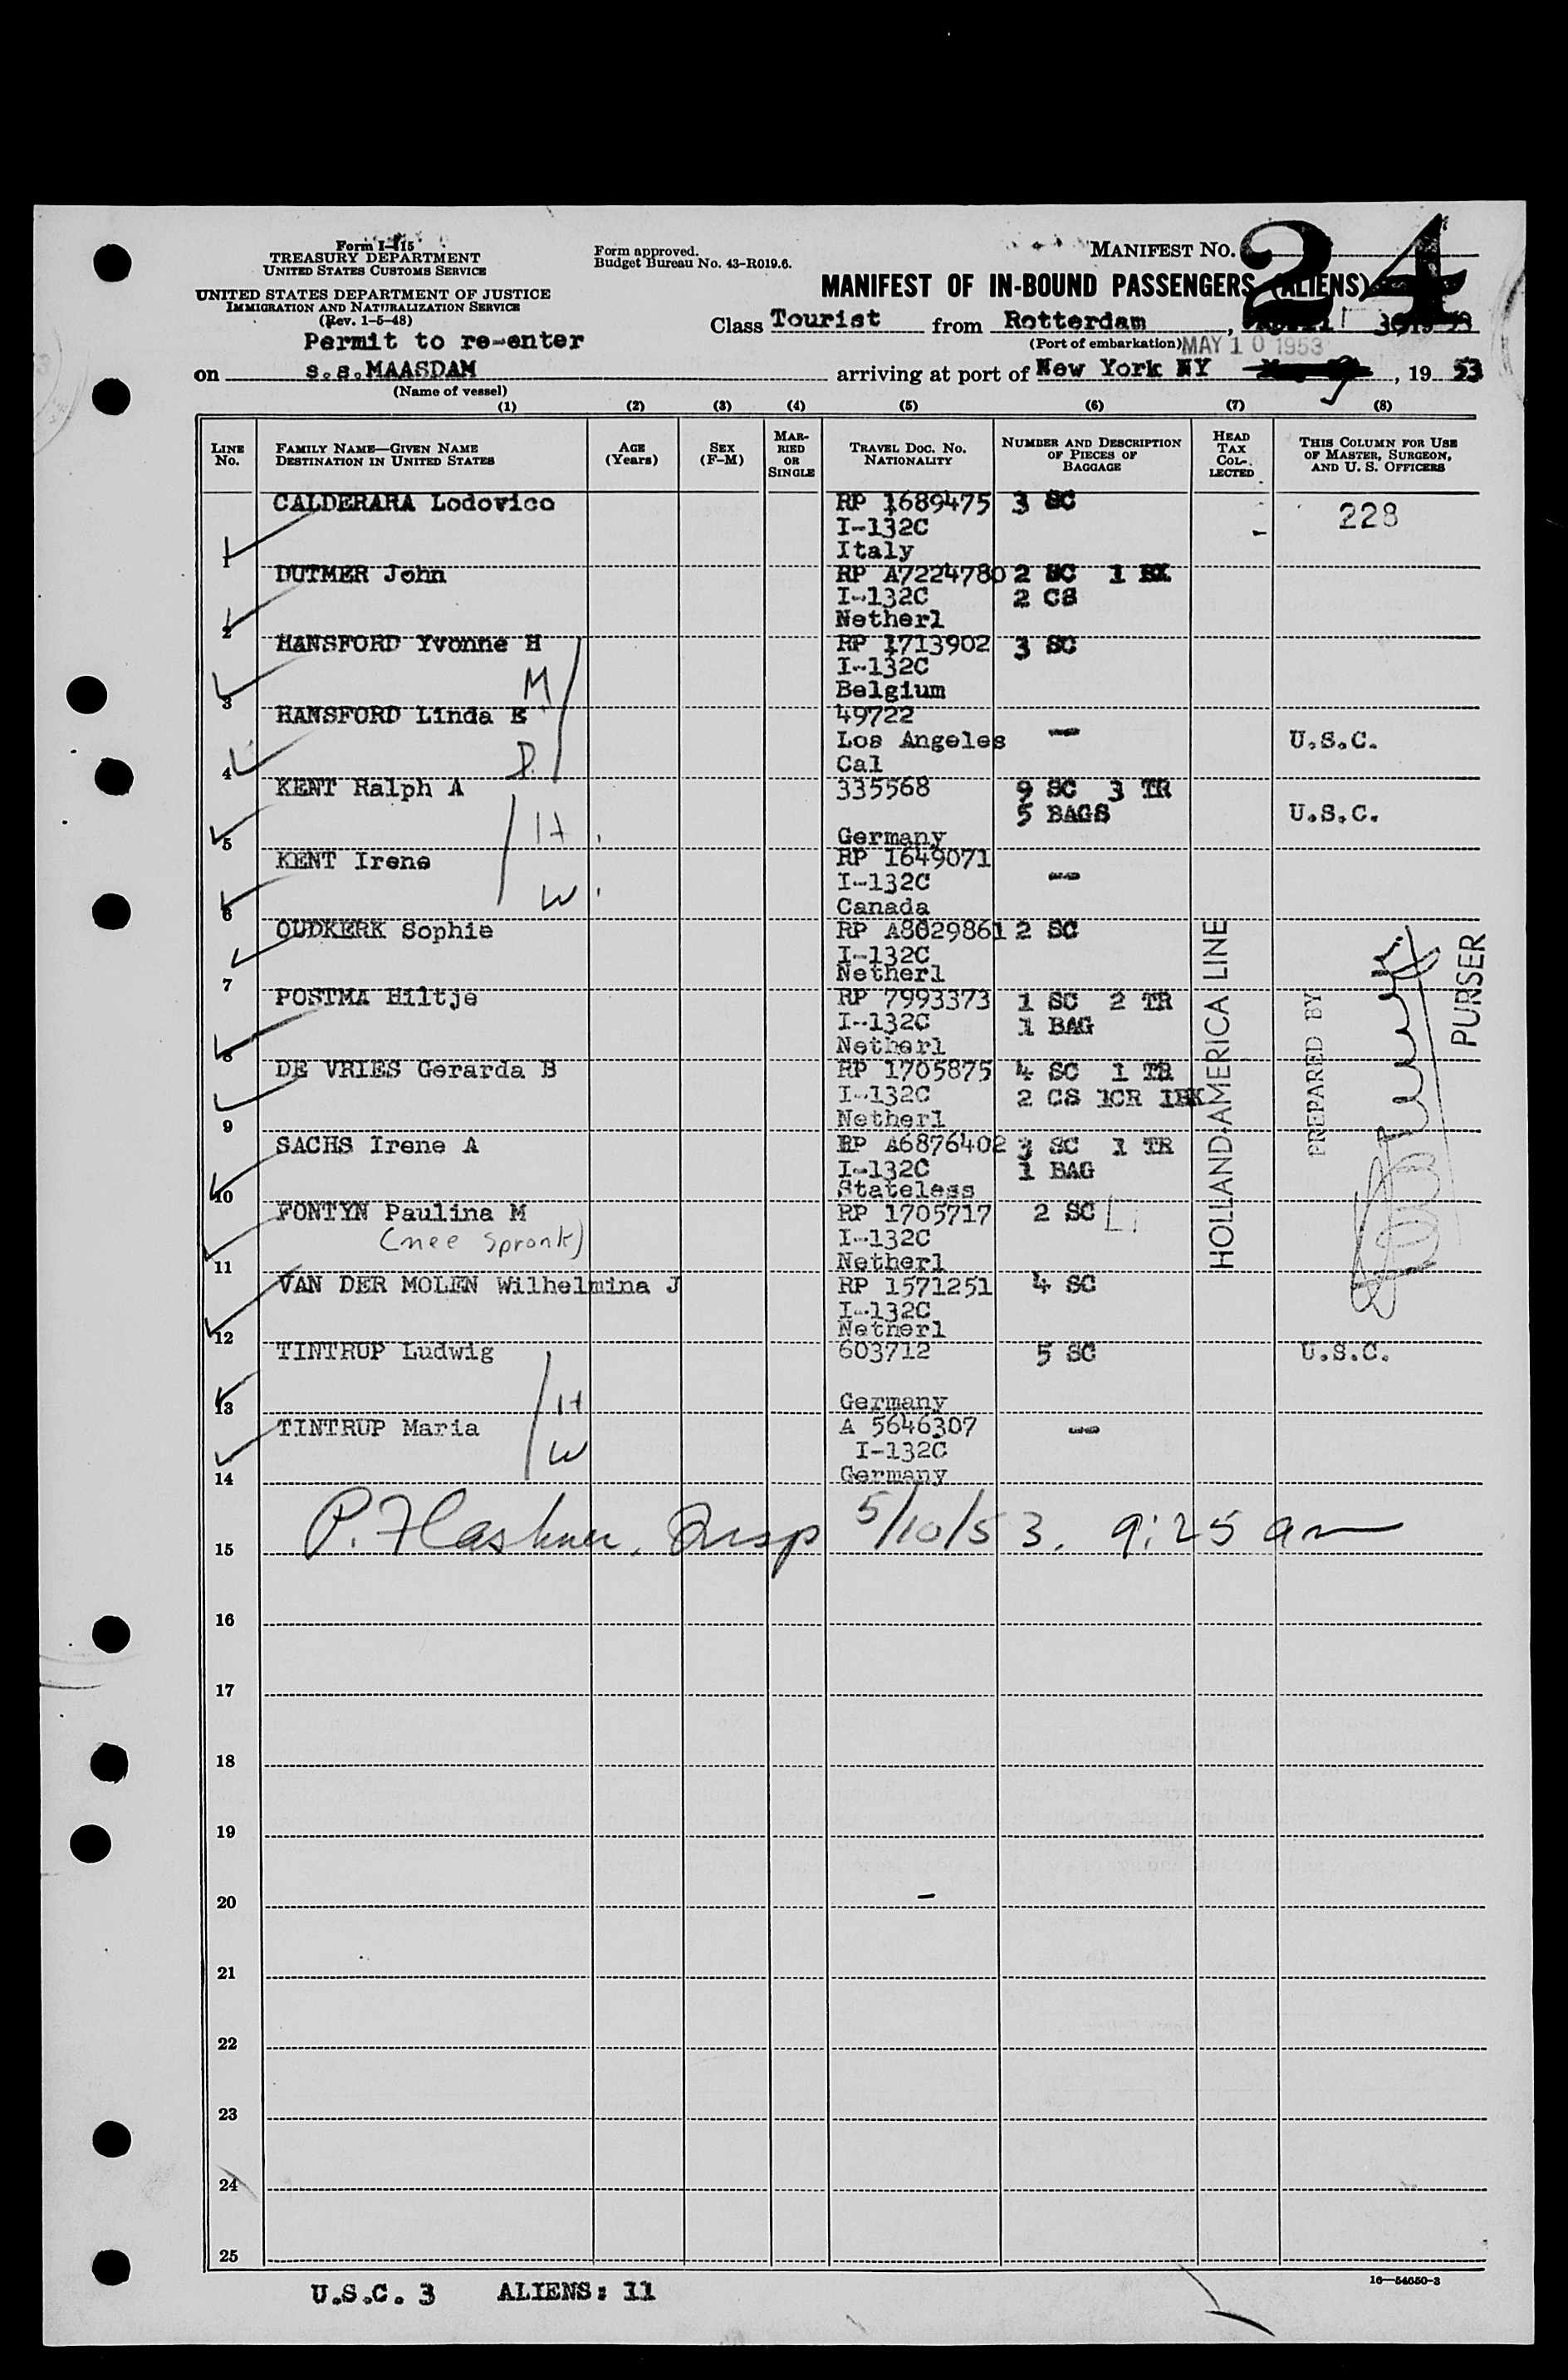 Form I-415
TREASURY DEPARTMENT
UNITED STATES CUSTOMS SERVICE
UNITED STATES DEPARTMENT OF JUSTICE
IMMIGRATION AND NATURALIZATION SERVICE
(Rev. 1-5-48)
Form approved.
Budget Bureau No. 43-R019.6.
MANIFEST NO. 24
MANIFEST OF IN-BOUND PASSENGERS (ALIENS)
Permit to re-enter
Class Tourist from Rotterdam, 30, 19 53
(Port of embarkation) MAY 10 1953
on s.s. MAASDAM arriving at port of New York NY , 19 53
(Name of vessel)
(1) (2) (3) (4) (5) (6) (7) (8)
LINE No. FAMILY NAME—GIVEN NAME DESTINATION IN UNITED STATES AGE (Years) SEX (F-M) MARRIED OR SINGLE TRAVEL DOC. NO. NATIONALITY NUMBER AND DESCRIPTION OF PIECES OF BAGGAGE HEAD TAX COLLECTED THIS COLUMN FOR USE OF MASTER, SURGEON, AND U. S. OFFICERS
CALDERARA Lodovico RP 1689475 3 SC 228
I-132C
1 Italy
DUTMER John RP A7224780 2 SC 1 BX
I-132C 2 CS
2 Netherl
HANSFORD Yvonne H RP 1713902 3 SC
I-132C
3 M Belgium
HANSFORD Linda E 49722
Los Angeles — U.S.C.
4 D. Cal
KENT Ralph A 335568 9 SC 3 TR
5 BAGS U.S.C.
5 H Germany
KENT Irene RP 1649071
I-132C —
6 W Canada
OUDKERK Sophie RP A8029861 2 SC
I-132C
7 Netherl
POSTMA Hiltje RP 7993373 1 SC 2 TR
I-132C 1 BAG
8 Netherl
DE VRIES Gerarda B RP 1705875 4 SC 1 TR
I-132C 2 CS 1CR 1BX
9 Netherl
SACHS Irene A RP A6876402 3 SC 1 TR
I-132C 1 BAG
10 Stateless
FONTYN Paulina M RP 1705717 2 SC
(nee Spronk) I-132C
11 Netherl
VAN DER MOLEN Wilhelmina J RP 1571251 4 SC
I-132C
12 Netherl
TINTRUP Ludwig 603712 5 SC U.S.C.
13 H Germany
TINTRUP Maria A 5646307 —
W I-132C
14 Germany
HOLLAND-AMERICA LINE
PREPARED BY
PURSER
15 P. Flashner, Insp 5/10/53. 9:25 am
16
17
18
19
20
21
22
23
24
25
U.S.C. 3 ALIENS: 11
16—54650-3